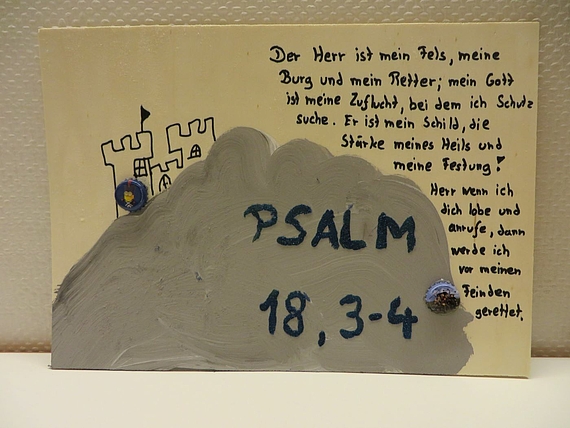 Der Herr ist mein Fels, meine
Burg und mein Retter; mein Gott
ist meine Zuflucht, bei dem ich Schutz
suche. Er ist mein Schild, die
Stärke meines Heils und
meine Festung!
Herr wenn ich
dich lobe und
anrufe, dann
werde ich
vor meinen
Feinden
gerettet.
PSALM
18,3-4